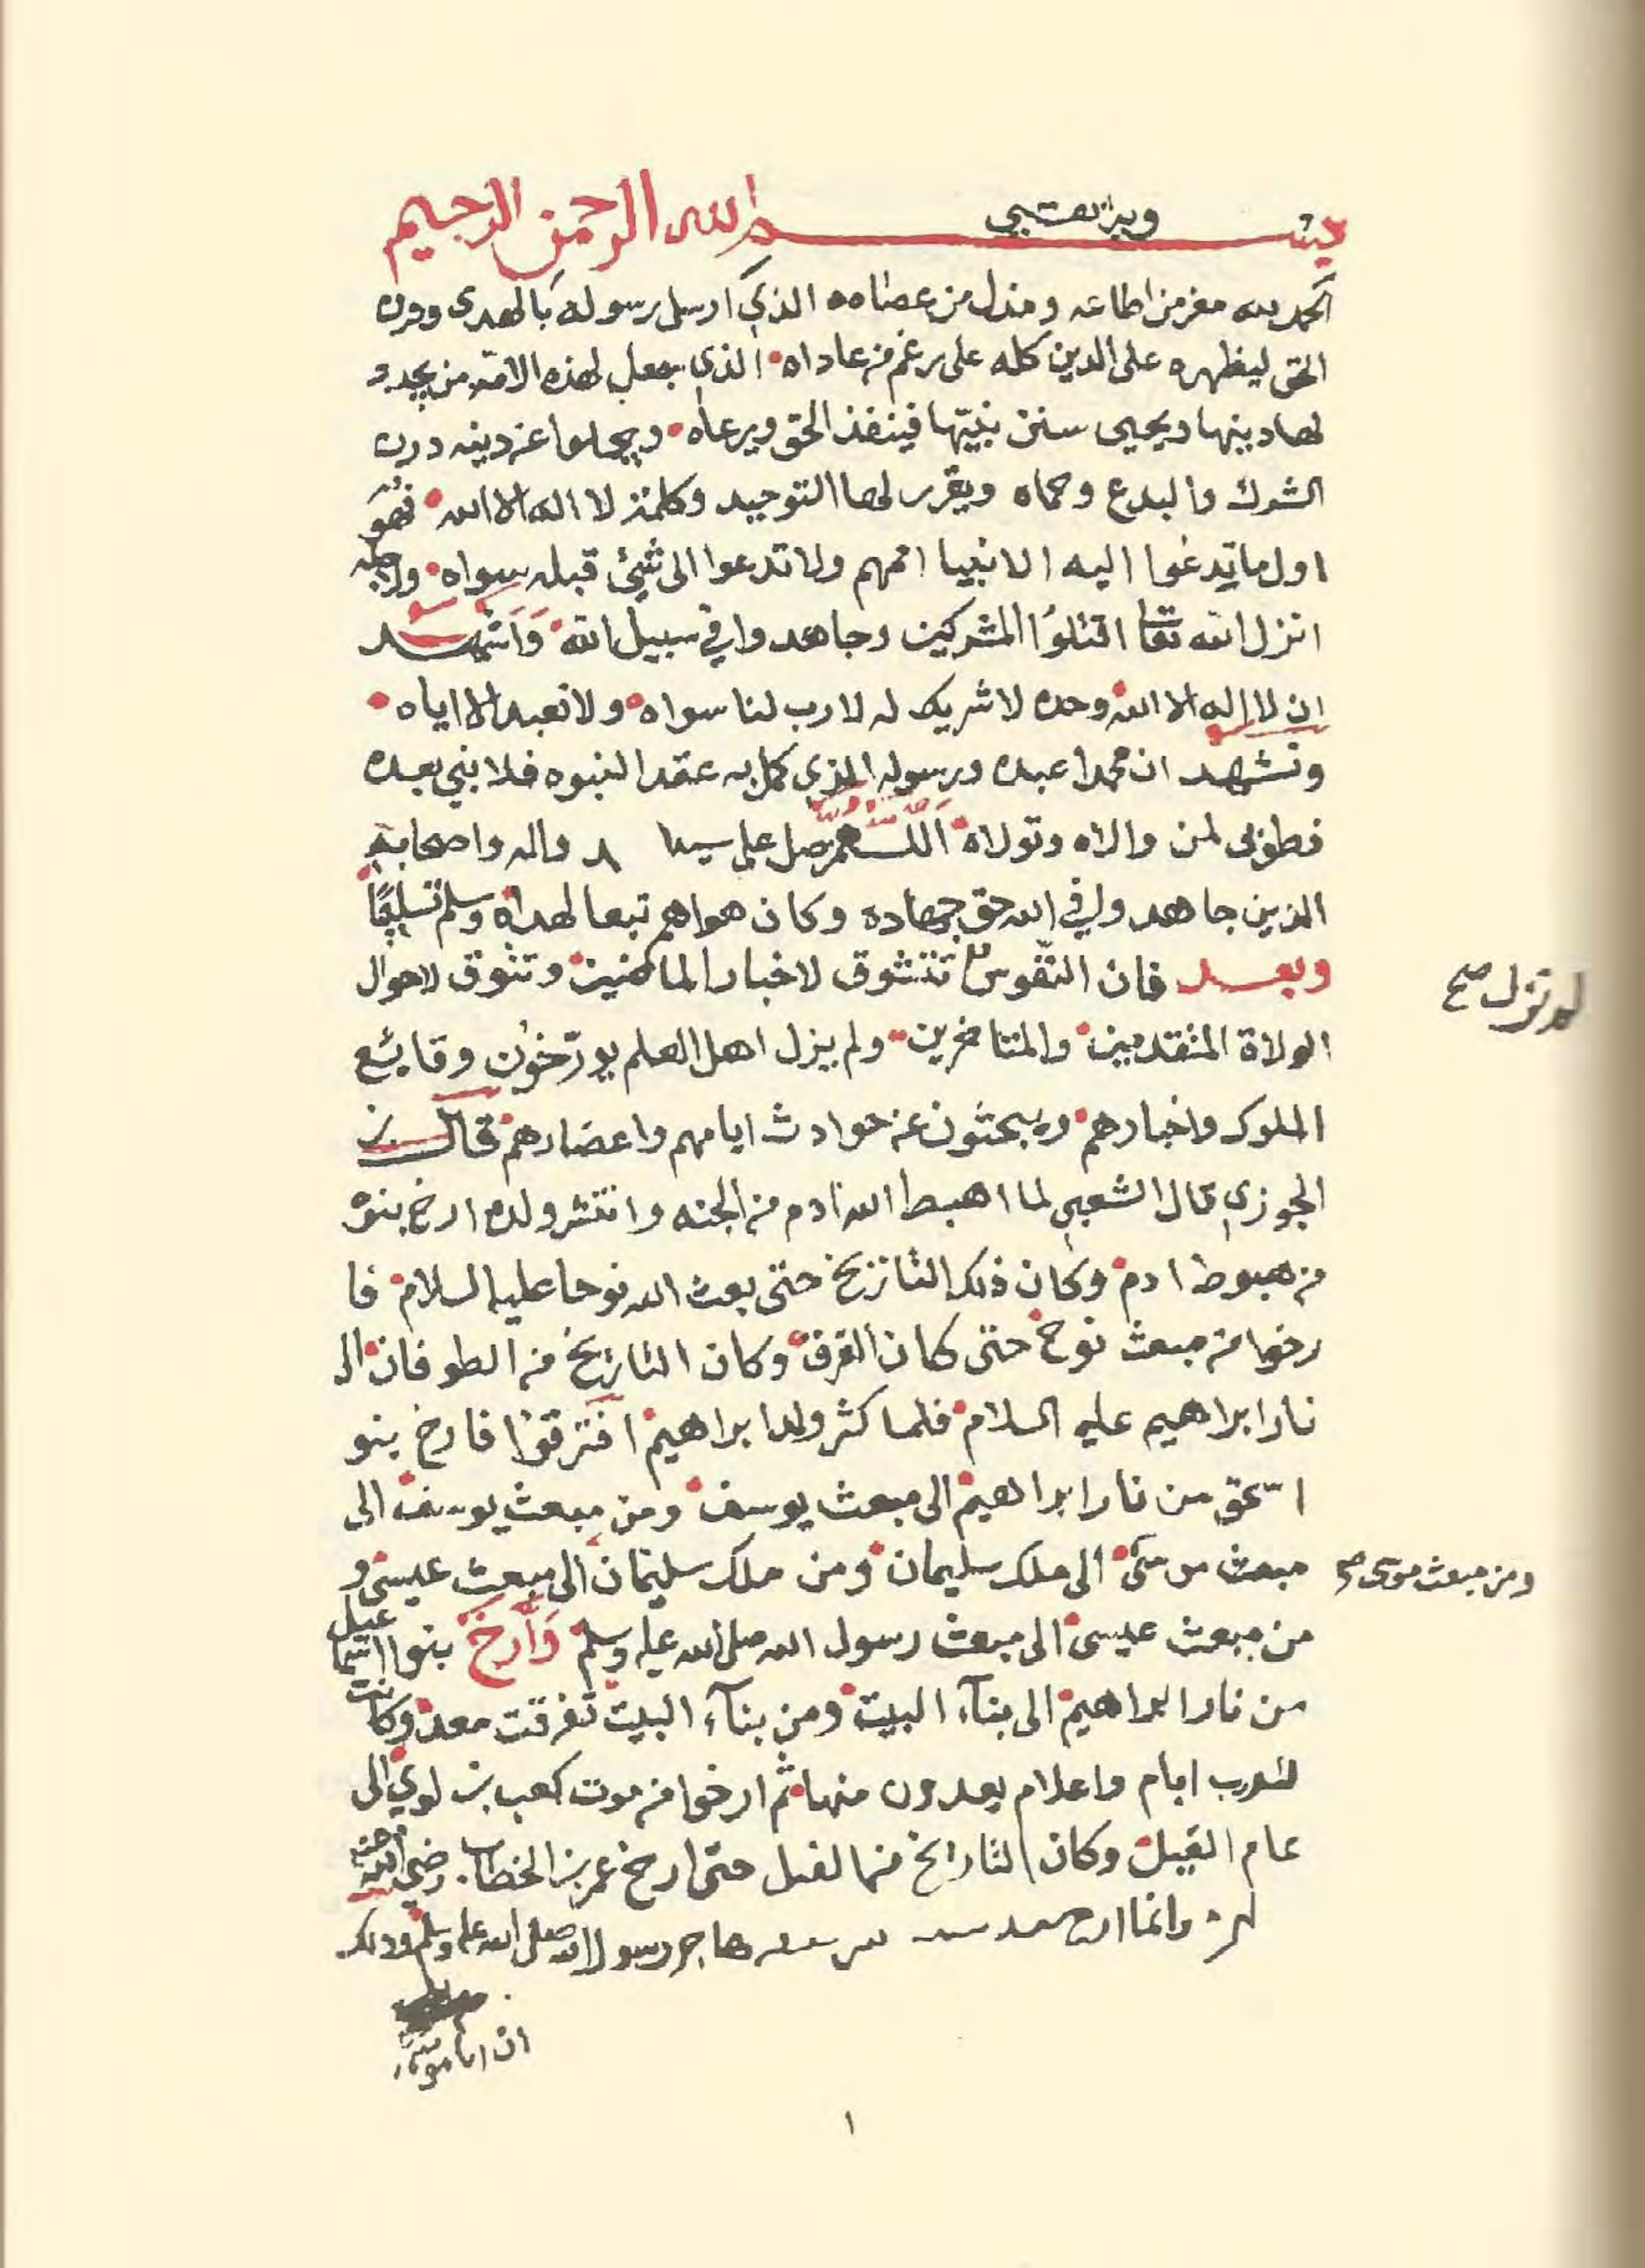 بسم الله الرحمن الرحيم
وبه ثقتي
الحمد لله معز من اطاعه ومذل من عصاه الذي ارسل رسوله بالهدى ودين
الحق ليظهره على الدين كله على رغم من عاداه الذي جعل لهذه الامة من يجدد
لها دينها ويحيي سنن نبيها فينفذ الحق ويرعاه ويجلوا عن دينه درن
الشرك والبدع وحماه ويقرر لها التوحيد وكلمة لا اله الا الله فهو
اول ما تدعوا اليه الانبيا اممهم ولا تدعوا الى شئ قبله سواه ولاجله
انزل الله تعا اقتلوا المشركين وجاهدوا في سبيل الله واشهد
ان لا اله الا الله وحده لا شريك له لا رب لنا سواه ولا نعبد الا اياه
ونشهد ان محمدا عبده ورسوله الذي كمل به عقد النبوه فلا نبي بعده
فطوبى لمن والاه وتولاه اللهم صل على واله واصحابه
الذين جاهدوا في الله حق جهاده وكان هواهم تبعا لهداه وسلم تسليما
وبعد فان النفوس تتشوق لاخبار الماضين وتتوق لاحوال
لم تزل صح
الولاة المتقدمين والمتاخرين ولم يزل اهل العلم يورخون وقايع
الملوك واخبارهم ويبحثون عن حوادث ايامهم واعصارهم قال بن
الجوزي قال الشعبي لما اهبط الله ادم من الجنه وانتشر ولده ارخ بنوه
من هبوط ادم وكان ذلك التاريخ حتى بعث الله نوحا عليه السلام فا
رخوا من مبعث نوح حتى كان الغرق وكان التاريخ من الطوفان الى
نار ابراهيم عليه السلام فلما كثر ولد ابراهيم افترقوا فارخ بنو
اسحق من نار ابراهيم الى مبعث يوسف ومن مبعث يوسف الى
مبعث موسى الى ملك سليمان ومن ملك سليمان الى مبعث عيسى و
ومن مبعث موسى صح
من مبعث عيسى الى مبعث رسول الله صلى الله عليه وسلم وارخ بنوا اسماعيل
من نار ابراهيم الى بناء البيت ومن بناء البيت تفرقت معد وكانت
للعرب ايام واعلام يعدون منها ثم ارخوا من موت كعب بن لوي الى
عام الفيل وكان التاريخ من الفيل حتى ارخ عمر بن الخطاب رضي الله عنه
وانما ارخ هاجر رسول الله صلى الله عليه وسلم وذلك
ان ابا موسى
١